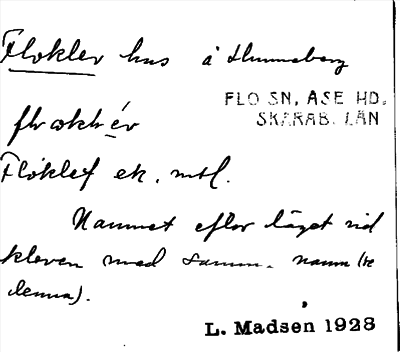 Floklev hus å Hunneberg
FLO SN, ÅSE HD.
SKARAB. LÄN
Floklef ek. mtl.
Namnet efter läget vid
kleven med samm. namn (se
denna).
L. Madsen 1928